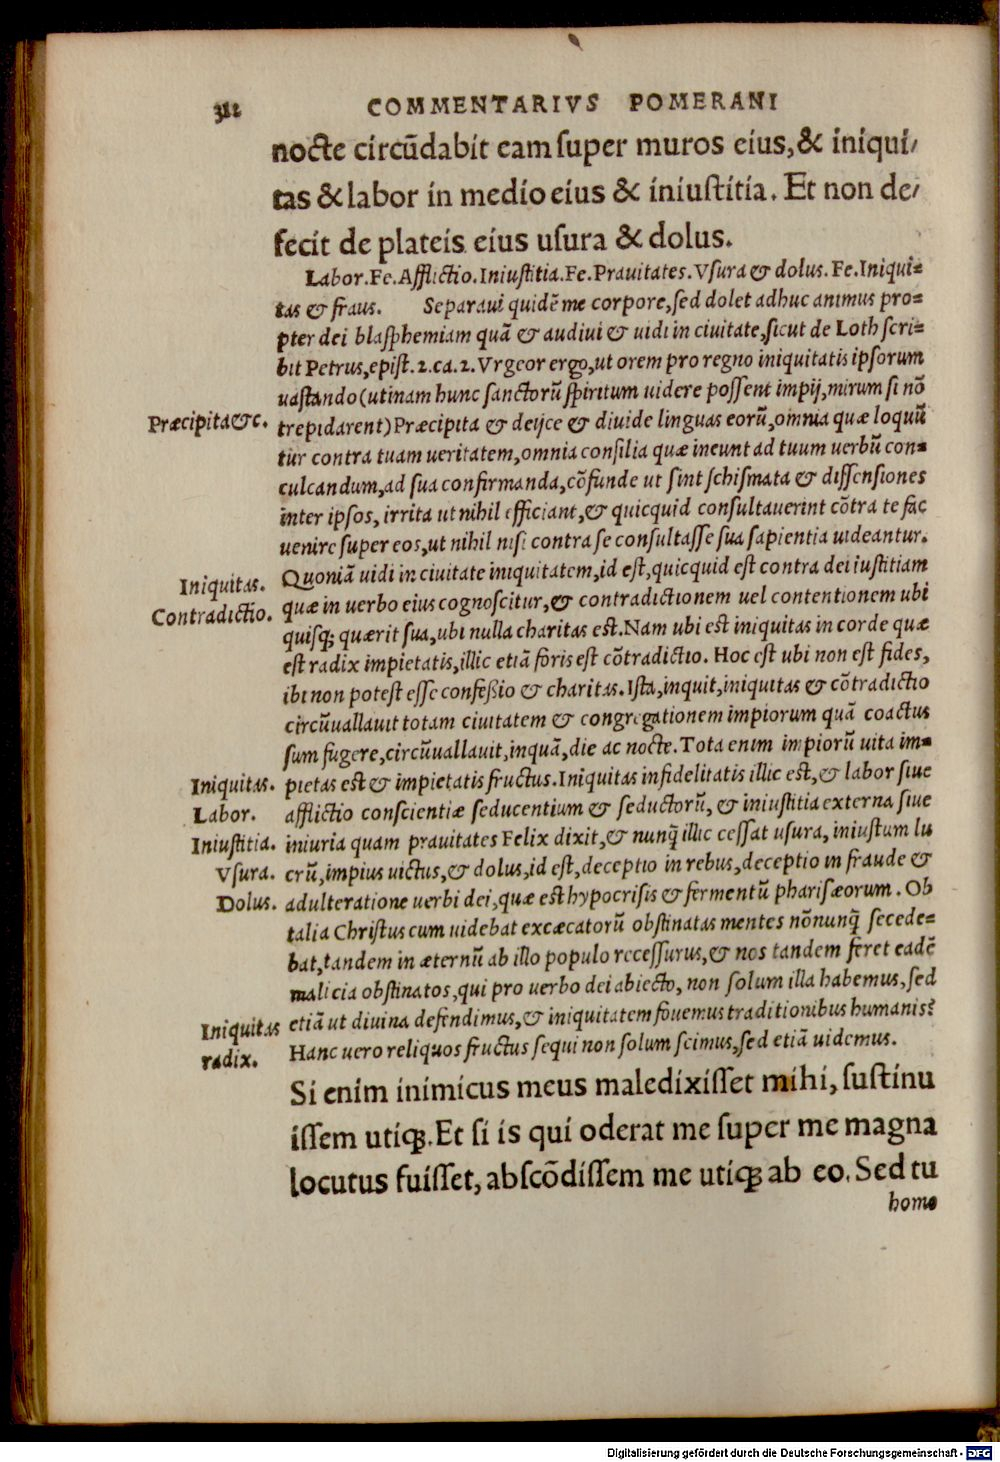 312 COMMENTARIVS POMERANI
nocte circũdabit eam ſuper muros eius, & iniqui/
tas & labor in medio eius & iniuſtitia. Et non de/
fecit de plateis eius uſura & dolus.
Labor. Fe. Afflictio. Iniuſtitia. Fe. Prauitates. Vſura & dolus. Fe. Iniqui=
tas & fraus. Separaui quidẽ me corpore, ſed dolet adhuc animus pro=
pter dei blaſphemiam quã & audiui & uidi in ciuitate, ſicut de Loth ſcri=
bit Petrus, epiſt. 2. ca. 2. Vrgeor ergo, ut orem pro regno iniquitatis ipſorum
uaſtando (utinam hunc ſanctorũ ſpiritum uidere poſſent impij, mirum ſi nõ
Præcipita &c.
trepidarent) Præcipita & deijce & diuide linguas eorũ, omnia quæ loquũ
tur contra tuam ueritatem, omnia conſilia quæ ineunt ad tuum uerbũ con=
culcandum, ad ſua confirmanda, cõfunde ut ſint ſchiſmata & diſſenſiones
inter ipſos, irrita ut nihil efficiant, & quicquid conſultauerint cõtra te fac
uenire ſuper eos, ut nihil niſi contra ſe conſultaſſe ſua ſapientia uideantur.
Iniquitas.
Quoniã uidi in ciuitate iniquitatem, id eſt, quicquid eſt contra dei iuſtitiam
Contradictio.
quæ in uerbo eius cognoſcitur, & contradictionem uel contentionem ubi
quiſq; quærit ſua, ubi nulla charitas eſt. Nam ubi eſt iniquitas in corde quæ
eſt radix impietatis, illic etiã foris eſt cõtradictio. Hoc eſt ubi non eſt fides,
ibi non poteſt eſſe confeßio & charitas. Iſta, inquit, iniquitas & cõtradictio
circũuallauit totam ciuitatem & congregationem impiorum quã coactus
ſum fugere, circũuallauit, inquã, die ac nocte. Tota enim impiorũ uita im=
Iniquitas.
pietas eſt & impietatis fructus. Iniquitas infidelitatis illic eſt, & labor ſiue
Labor.
afflictio conſcientiæ ſeducentium & ſeductorũ, & iniuſtitia externa ſiue
Iniuſtitia.
iniuria quam prauitates Felix dixit, & nunq̃ illic ceſſat uſura, iniuſtum lu
Vſura.
crũ, impius uictus, & dolus, id eſt, deceptio in rebus, deceptio in fraude &
Dolus.
adulteratione uerbi dei, quæ eſt hypocriſis & fermentũ phariſæorum. Ob
talia Chriſtus cum uidebat excæcatorũ obſtinatas mentes nõnunq̃ ſecede=
bat, tandem in æternũ ab illo populo receſſurus, & nos tandem feret eadẽ
malicia obſtinatos, qui pro uerbo dei abiecto, non ſolum illa habemus, ſed
Iniquitas
etiã ut diuina defendimus, & iniquitatem fouemus traditionibus humanis?
radix.
Hanc uero reliquos fructus ſequi non ſolum ſcimus, ſed etiã uidemus.
Si enim inimicus meus maledixiſſet mihi, ſuſtinu
iſſem utiq;. Et ſi is qui oderat me ſuper me magna
locutus fuiſſet, abſcõdiſſem me utiq; ab eo. Sed tu
homo
Digitalisierung gefördert durch die Deutsche Forschungsgemeinschaft - DFG